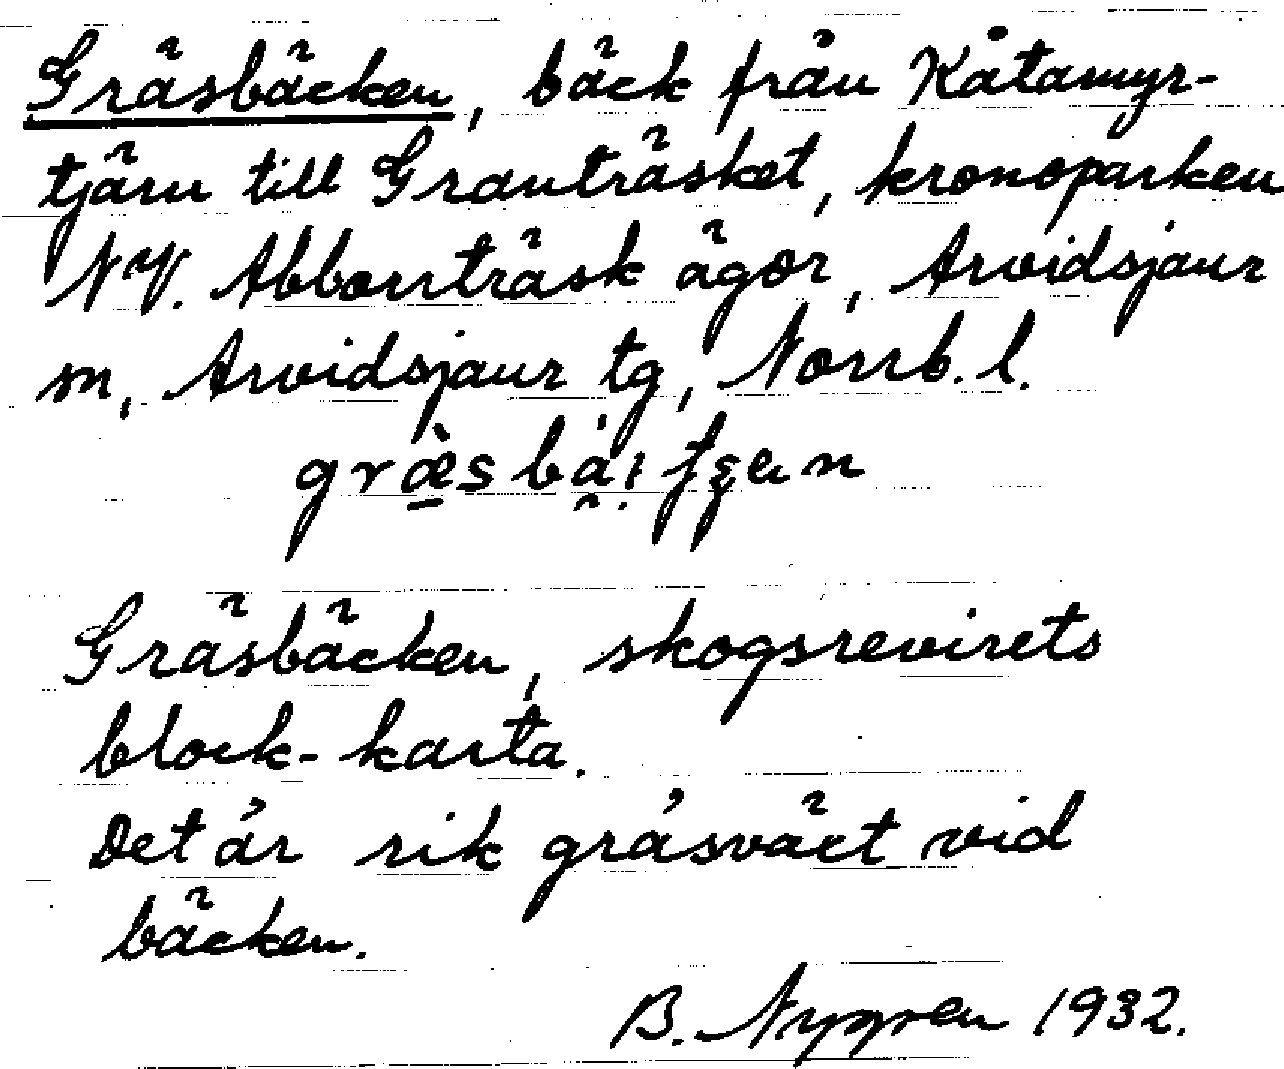 Gräsbäcken, bäck från Kåtamyr-
tjärn till Granträsket, kronoparken
NV. Abborrträsk ägor, Arvidsjaur
sn, Arvidsjaur tg, Norrb. l.
Gräsbäcken, skogsrevirets
block-karta.
Det är rik gräsväxt vid
bäcken.
B. Nygren 1932.